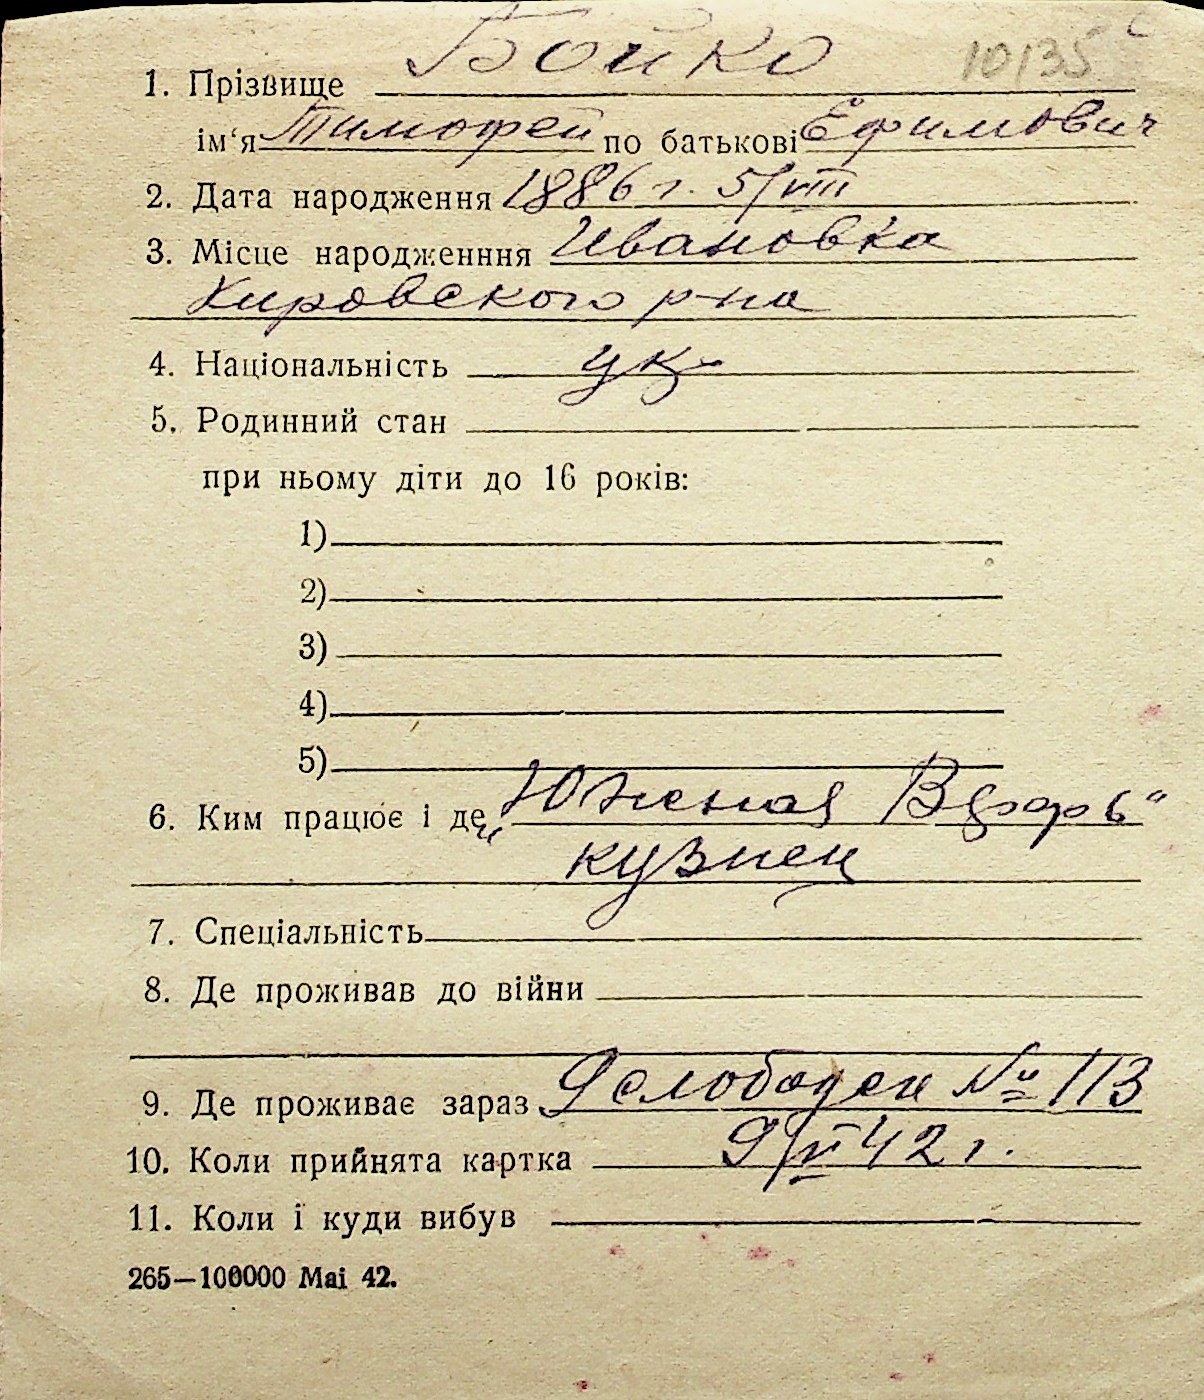 10135
1. Прізвище Бойко
ім‘я Тимофей по батькові Ефимович
2. Дата народження 1886 г. 5/VIII
3. Місце народженння Ивановка
Кировского р-на
4. Національність ук
5. Родинний стан
при ньому діти до 16 років:
1)
2)
3)
4)
5)
6. Ким працює і де „Южная Верфь“
кузнец
7. Спеціальність
8. Де проживав до війни
9. Де проживає зараз 9 слободск № 113
10. Коли прийнята картка 9/VI 42 г.
11. Коли і куди вибув
265—100000 Mai 42.